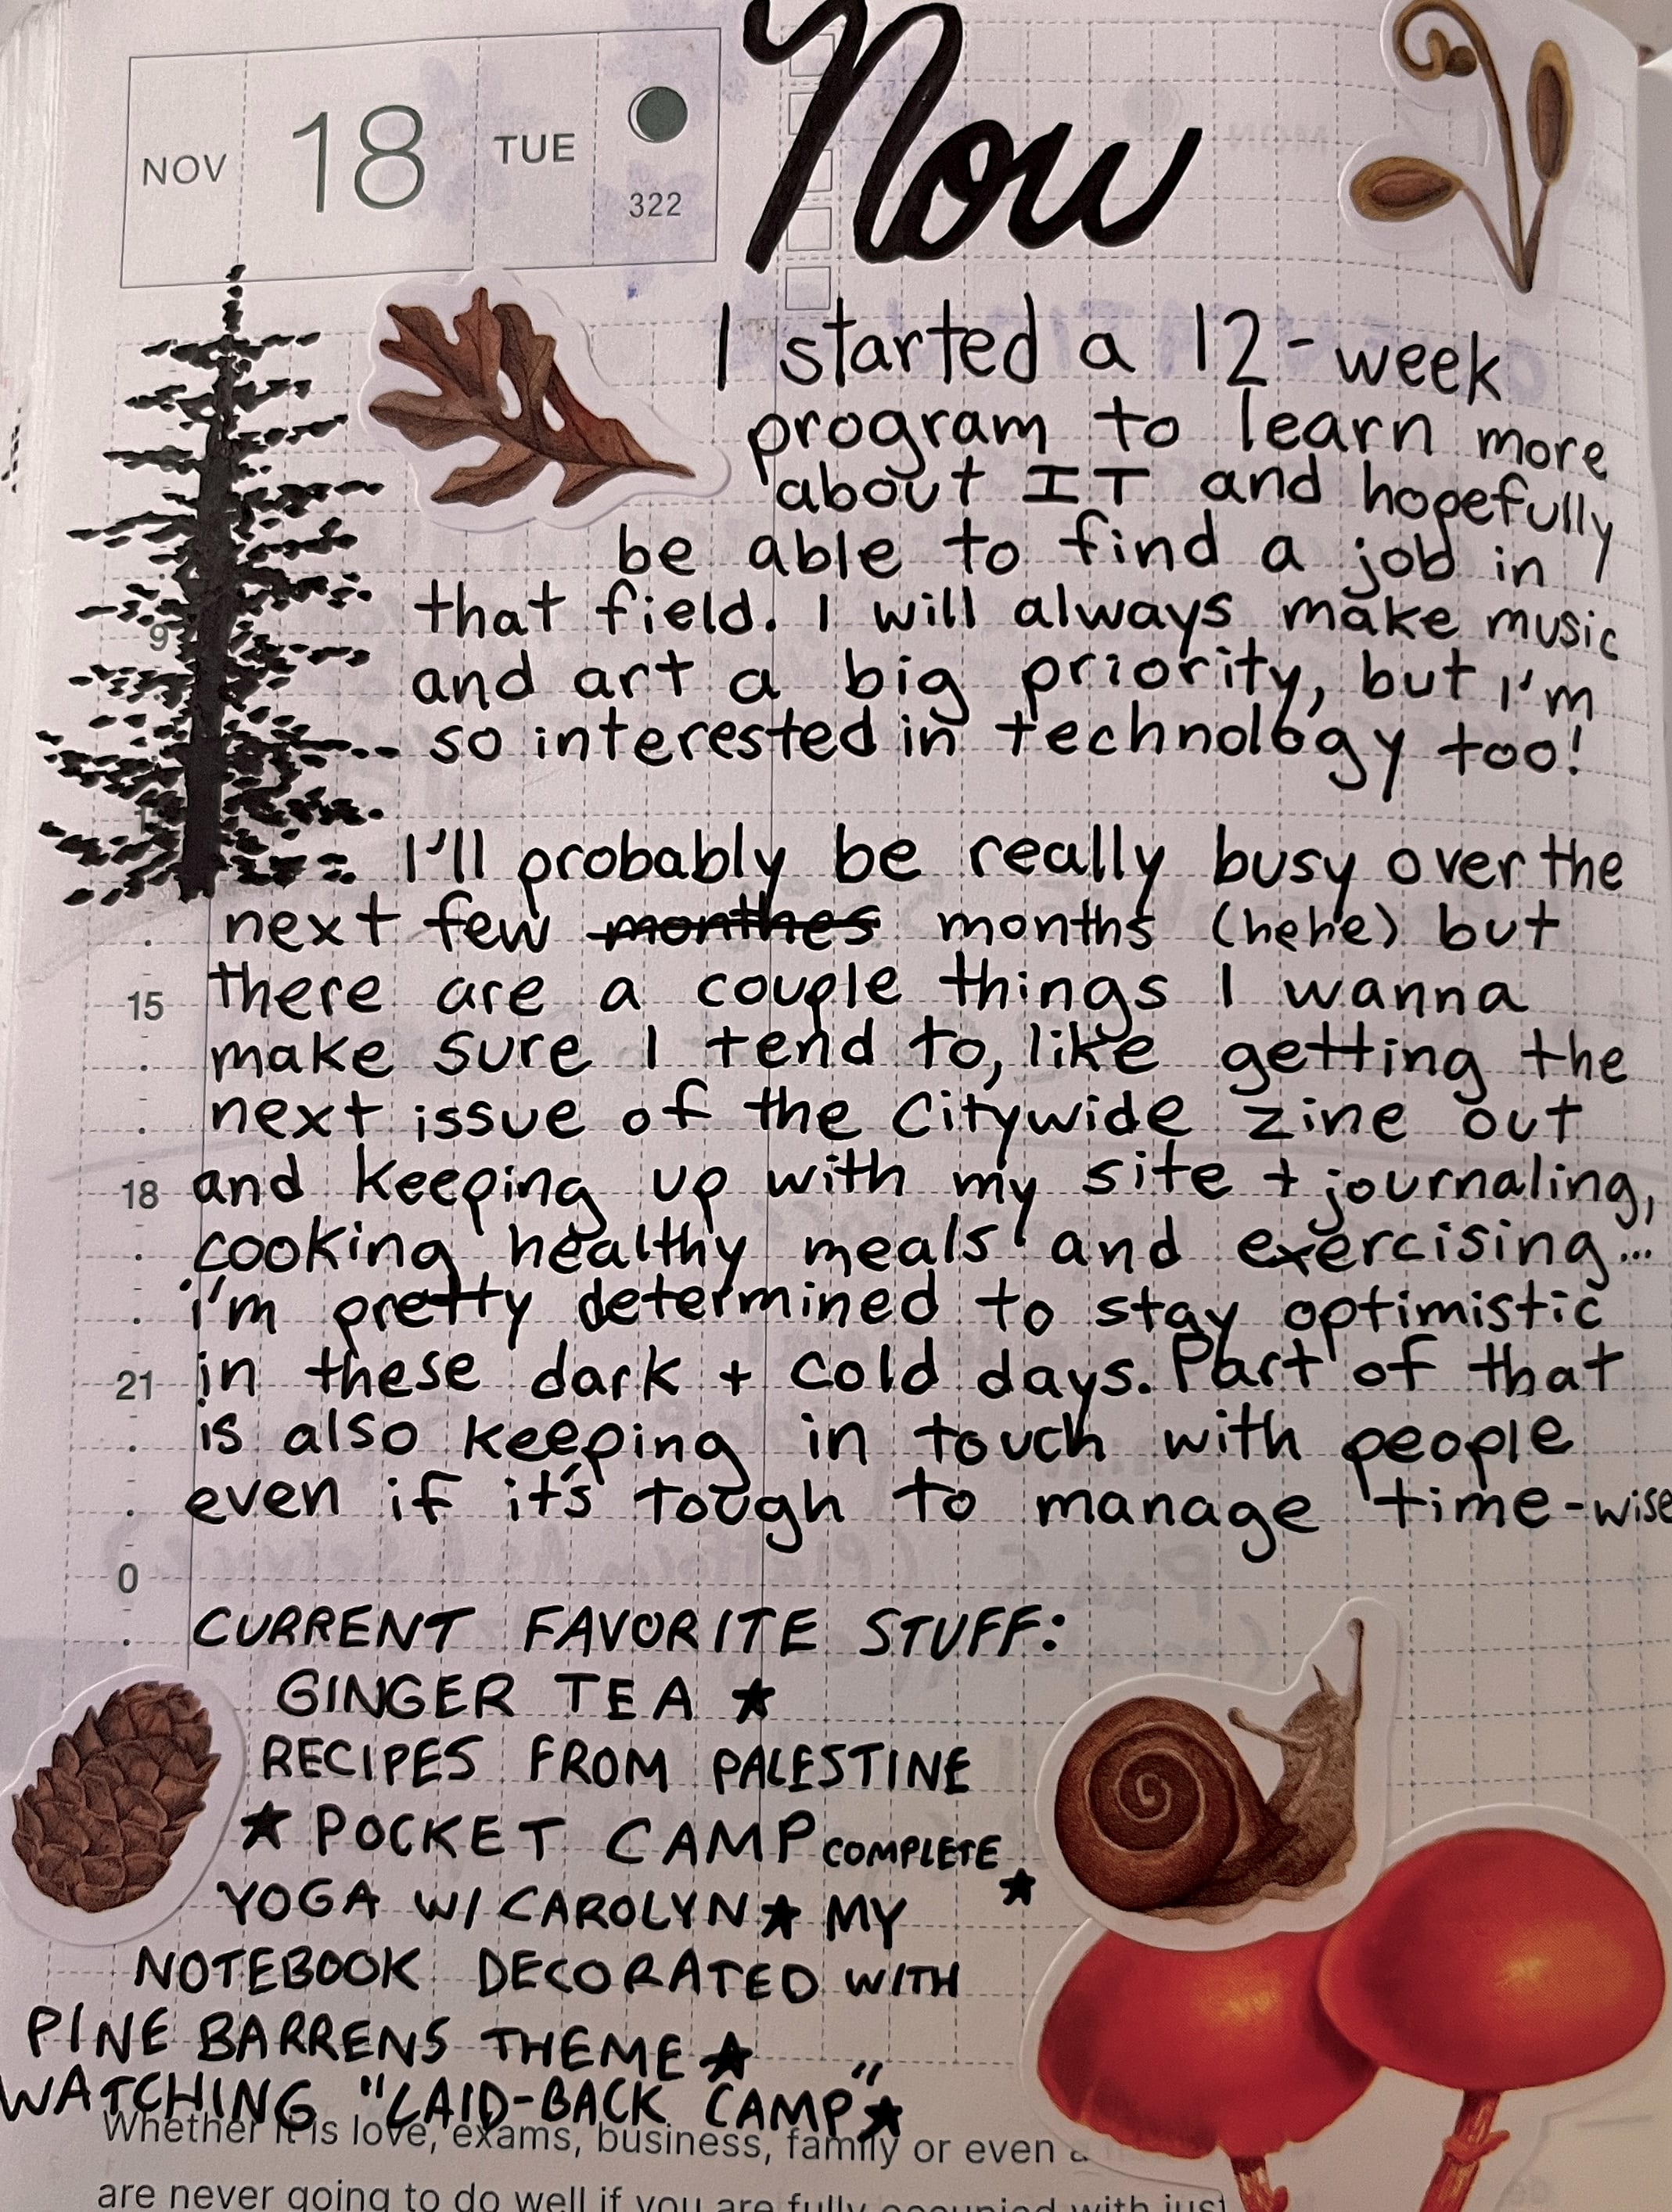 NOV 18 TUE 322
Now
I started a 12-week
program to learn more
about IT and hopefully
be able to find a job in
that field. I will always make music
and art a big priority, but I'm
so interested in technology too!
9
I'll probably be really busy over the
next few monthes months (hehe) but
15 there are a couple things I wanna
make sure I tend to, like getting the
next issue of the Citywide zine out
18 and keeping up with my site + journaling,
cooking healthy meals and exercising...
i'm pretty determined to stay optimistic
21 in these dark + cold days. Part of that
is also keeping in touch with people
even if it's tough to manage time-wise
0
CURRENT FAVORITE STUFF:
GINGER TEA ★
RECIPES FROM PALESTINE
★ POCKET CAMP COMPLETE ★
YOGA W/ CAROLYN ★ MY
NOTEBOOK DECORATED WITH
PINE BARRENS THEME ★
WATCHING "LAID-BACK CAMP" ★
Whether it is love, exams, business, family or even
are never going to do well if you are fully occupied with just